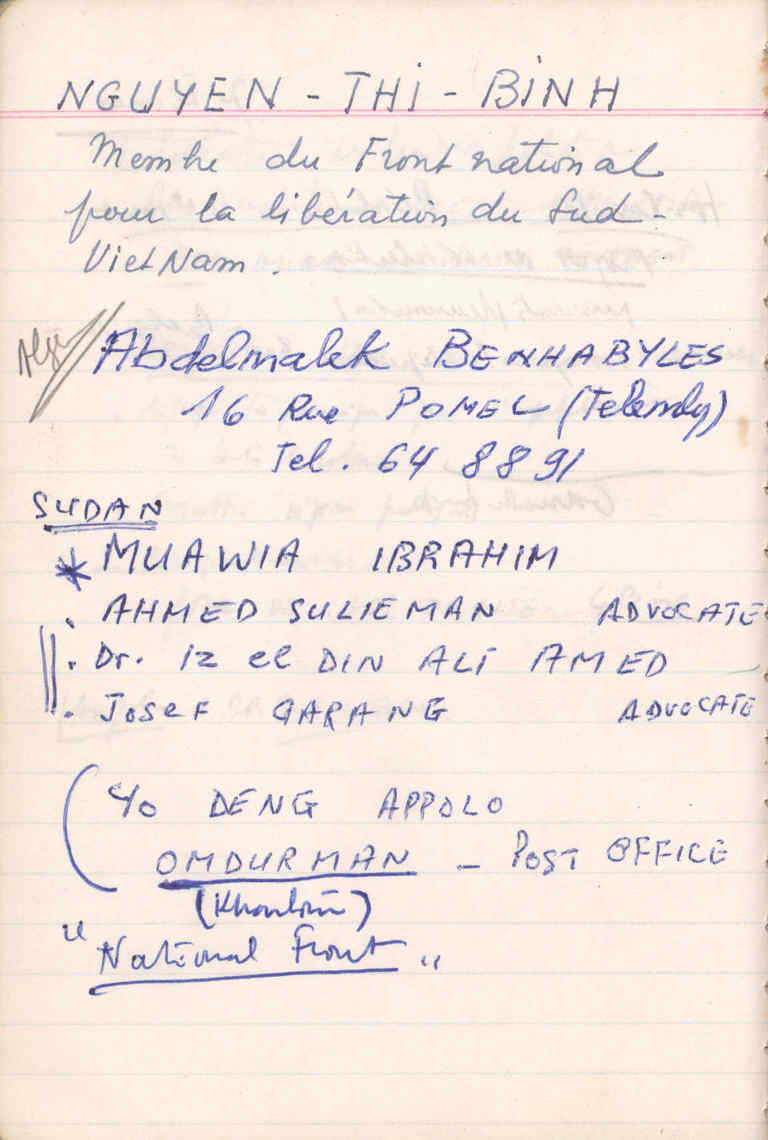 NGUYEN - THi - BiNH
Membre du Front national
pour la libération du Sud-
Viet Nam.
Abdelmalek BENHABYLES
16 Rue POMEL (Telemly)
Tel. 64 88 91
SUDAN
* MUAWIA IBRAHIM
. AHMED SULIEMAN ADVOCATE
. Dr. iz el DIN ALi AMED
. JOSEF GARANG ADVOCATE
( c/o DENG APPOLO
OMDURMAN - POST OFFICE
(Khartoum)
"National Front"